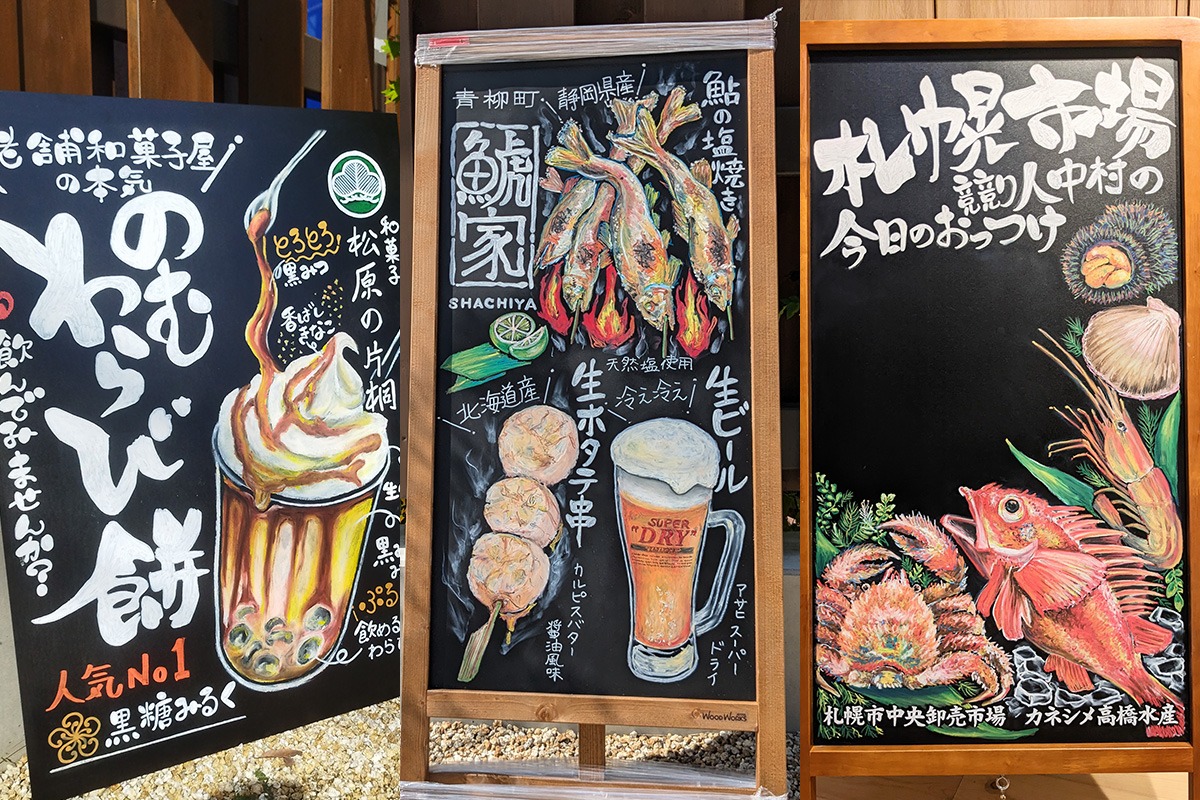 老舗和菓子屋
の本気
のむ
わらび餅
飲んでみませんか?
人気No1
黒糖みるく
とろとろ
黒みつ
香ばし
きなこ
和菓子
松原の片桐
生
黒
ぷる
飲める
わらび
青柳町
静岡県産
鯱家
SHACHIYA
鮎の塩焼き
天然塩使用
北海道産
生ホタテ串
カルピスバター
醤油風味
冷え冷え
生ビール
SUPER
"DRY"
アサヒスーパー
ドライ
WOODWORKS
札幌市場
競り人中村の
今日のおっつけ
札幌市中央卸売市場 カネシメ高橋水産